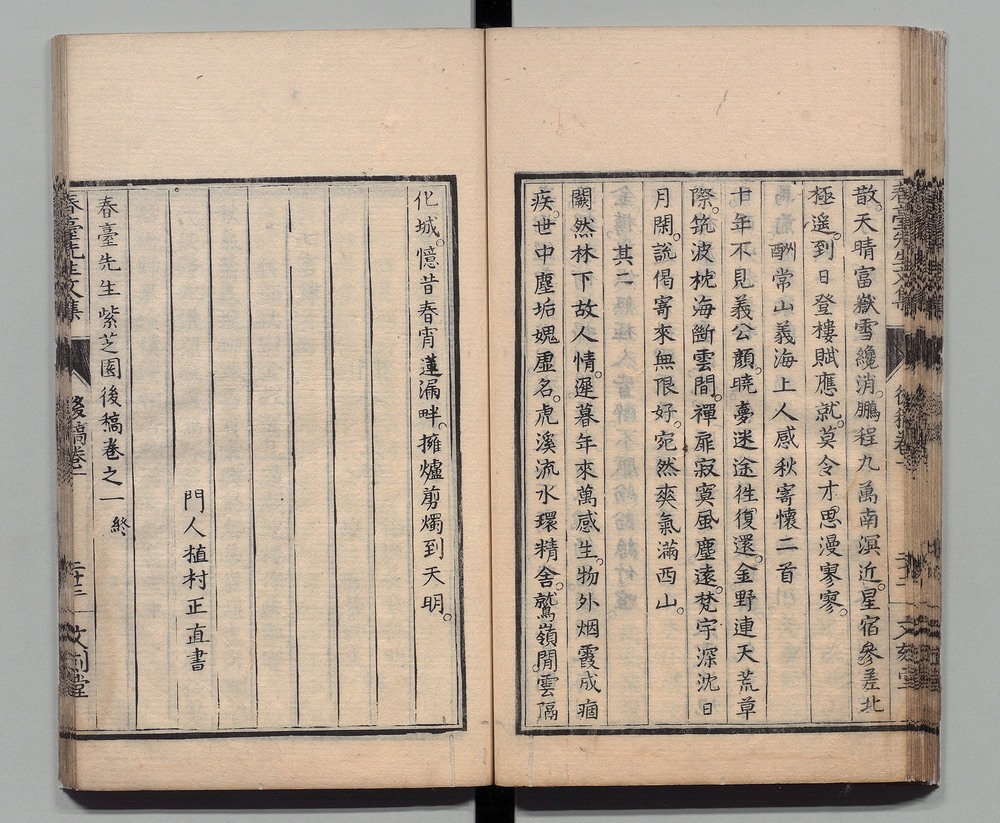 散。天晴富嶽雪纔消。鵬程九萬南溟近。星宿參差北
極遥。到日登樓賦應就。莫令才思漫寥寥。
酬常山義海上人感秋寄懷二首
十年不見義公顏。曉夢迷途往復還。金野連天荒草
際。筑波枕海斷雲間。禪扉寂寞風塵遠。梵宇深沈日
月閑。說偈寄來無限好。宛然爽氣滿西山。
其二
闃然林下故人情。遲暮年來萬感生。物外烟霞成痼
疾。世中塵垢媿虛名。虎溪流水環精舍。鷲嶺閒雲隔
化城。憶昔春宵蓮漏畔。擁爐剪燭到天明。
門人植村正直書
春臺先生紫芝園後稿卷之一 終
春臺先生文集 後稿卷一